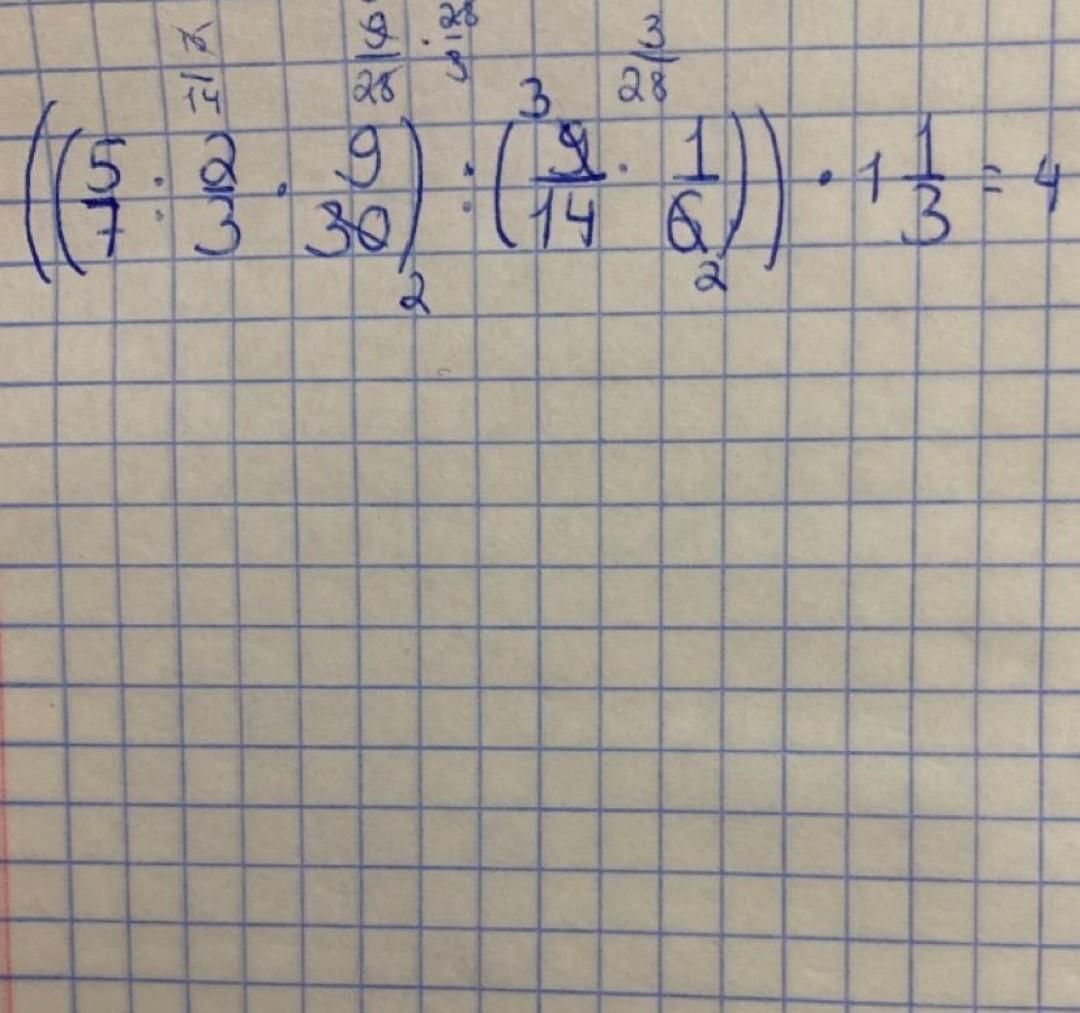 9/28 · 28/3 3/28
3
((5/7 : 2/3 · 9/30) : (9/14 · 1/6)) · 1 1/3 = 4
2 2